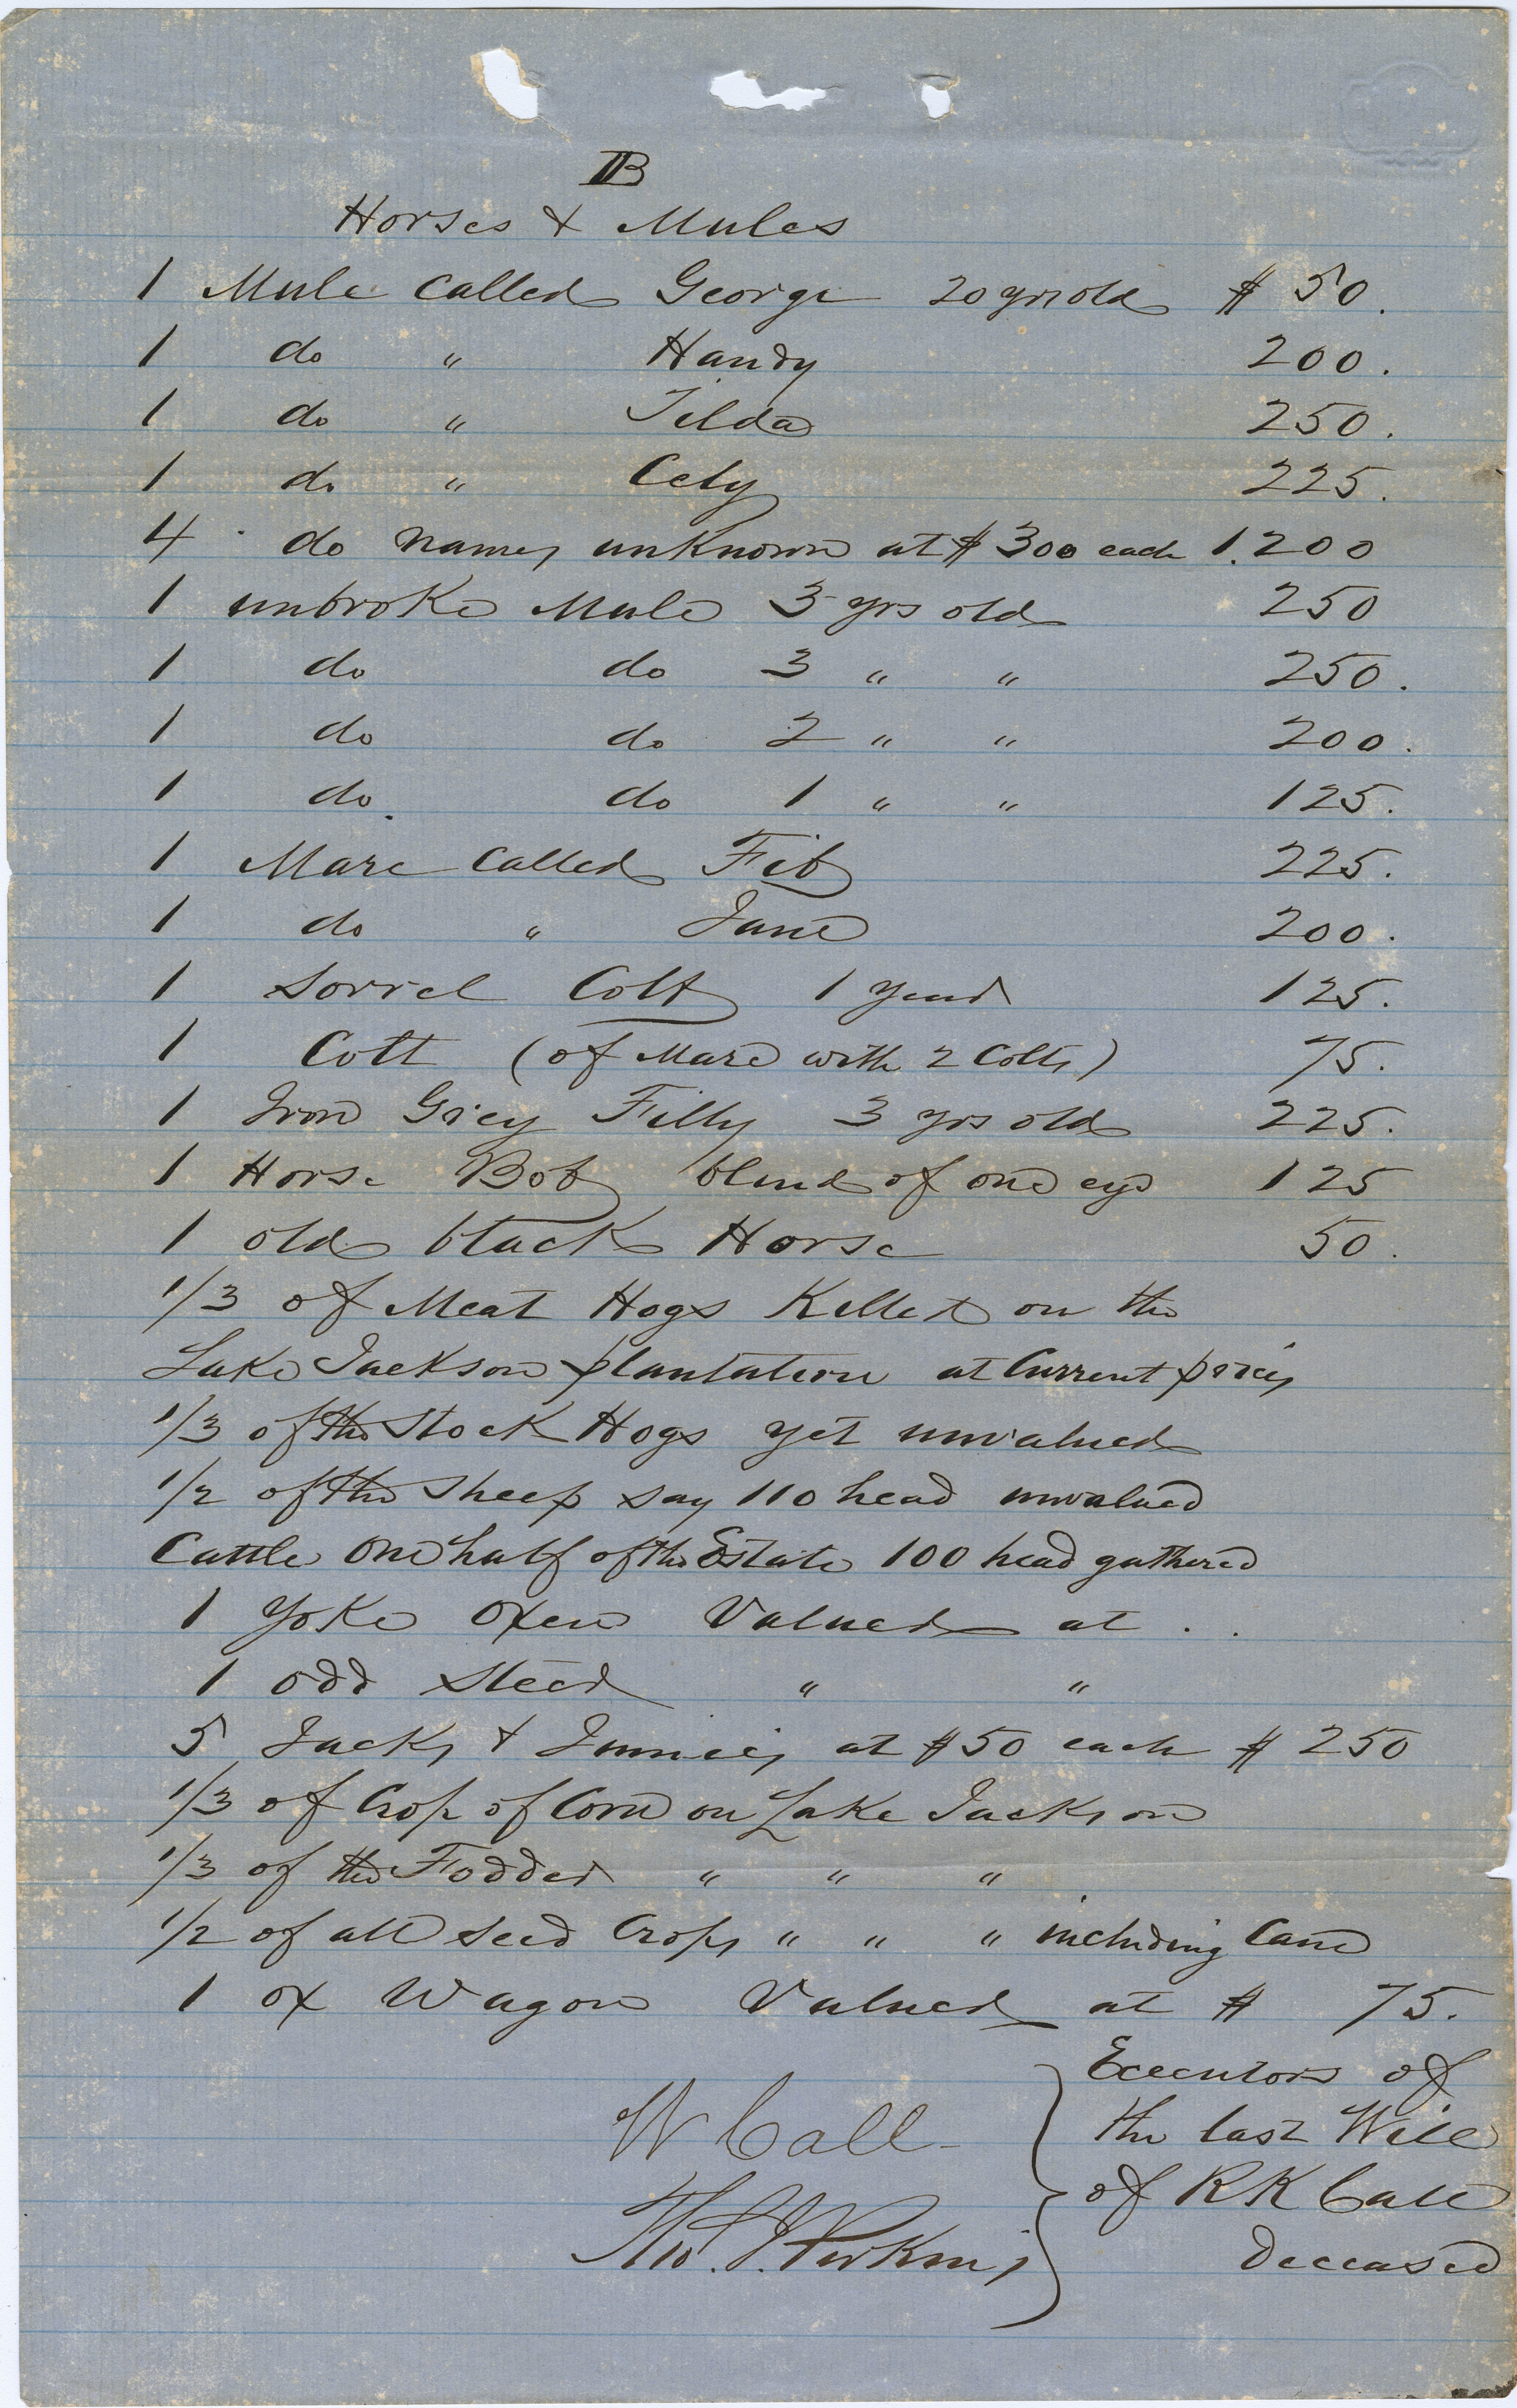 B
Horses & Mules
1 Mule Called George 20 yrs old $ 50.
1 do " Handy 200.
1 do " Tilda 250.
1 do " Cely 225.
4 do names unknown at $300 each 1.200
1 unbroke Mule 3 yrs old 250
1 do do 3 " " 250.
1 do do 2 " " 200.
1 do do 1 " " 125.
1 Mare Called Fib 225.
1 do " Jane 200.
1 Sorrel Colt 1 year 125.
1 Colt (of Mare with 2 Colts) 75.
1 Iron Grey Filly 3 yrs old 225.
1 Horse Bob blind of one eye 125
1 old black Horse 50.
1/3 of Meat Hogs Killed on the
Lake Jackson plantation at Current prices
1/3 of the Stock Hogs yet unvalued
1/2 of the Sheep say 110 head unvalued
Cattle One half of the Estate 100 head gathered
1 Yoke Oxen Valued at . .
1 odd Steer " "
5 Jacks & Jennies at $50 each $ 250
1/3 of Crop of Corn on Lake Jackson
1/3 of the Fodder " " "
1/2 of all seed Crops " " " including Cane
1 ox Wagon Valued at $ 75.
Executors of
W Call the last Will
of R K Call
Tho. J. Perkins deceased